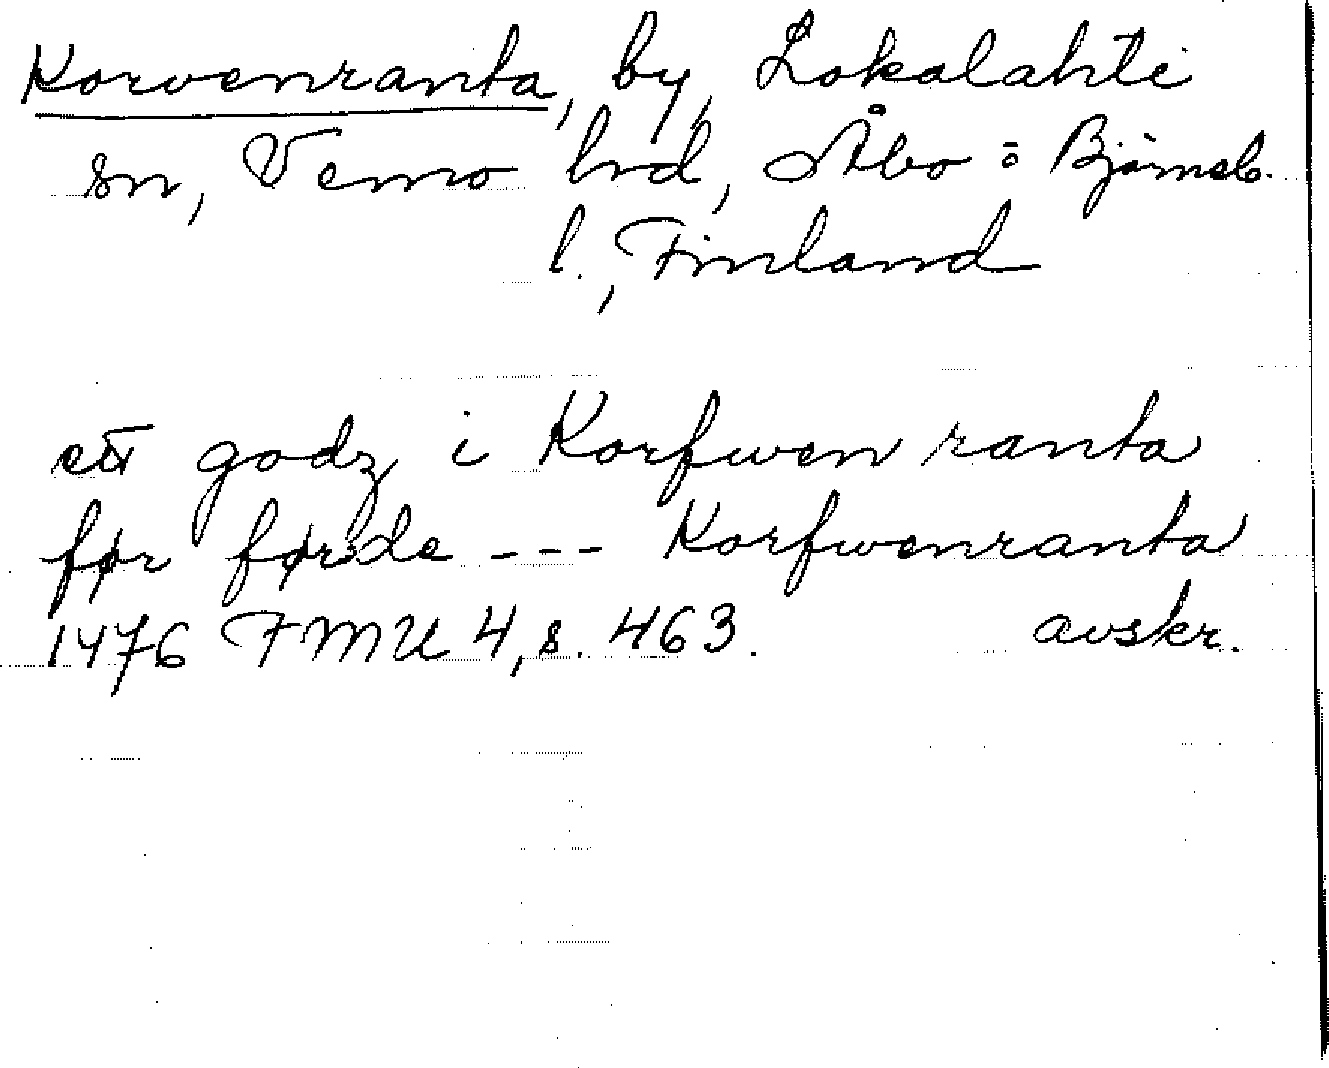 Korvenranta, by, Lokalahti
sn, Vemo hrd, Åbo o Björneb.
l., Finland
ett godz i Korfwen ranta
før førde --- Korfwenranta
1476 FMU 4, s. 463. avskr.